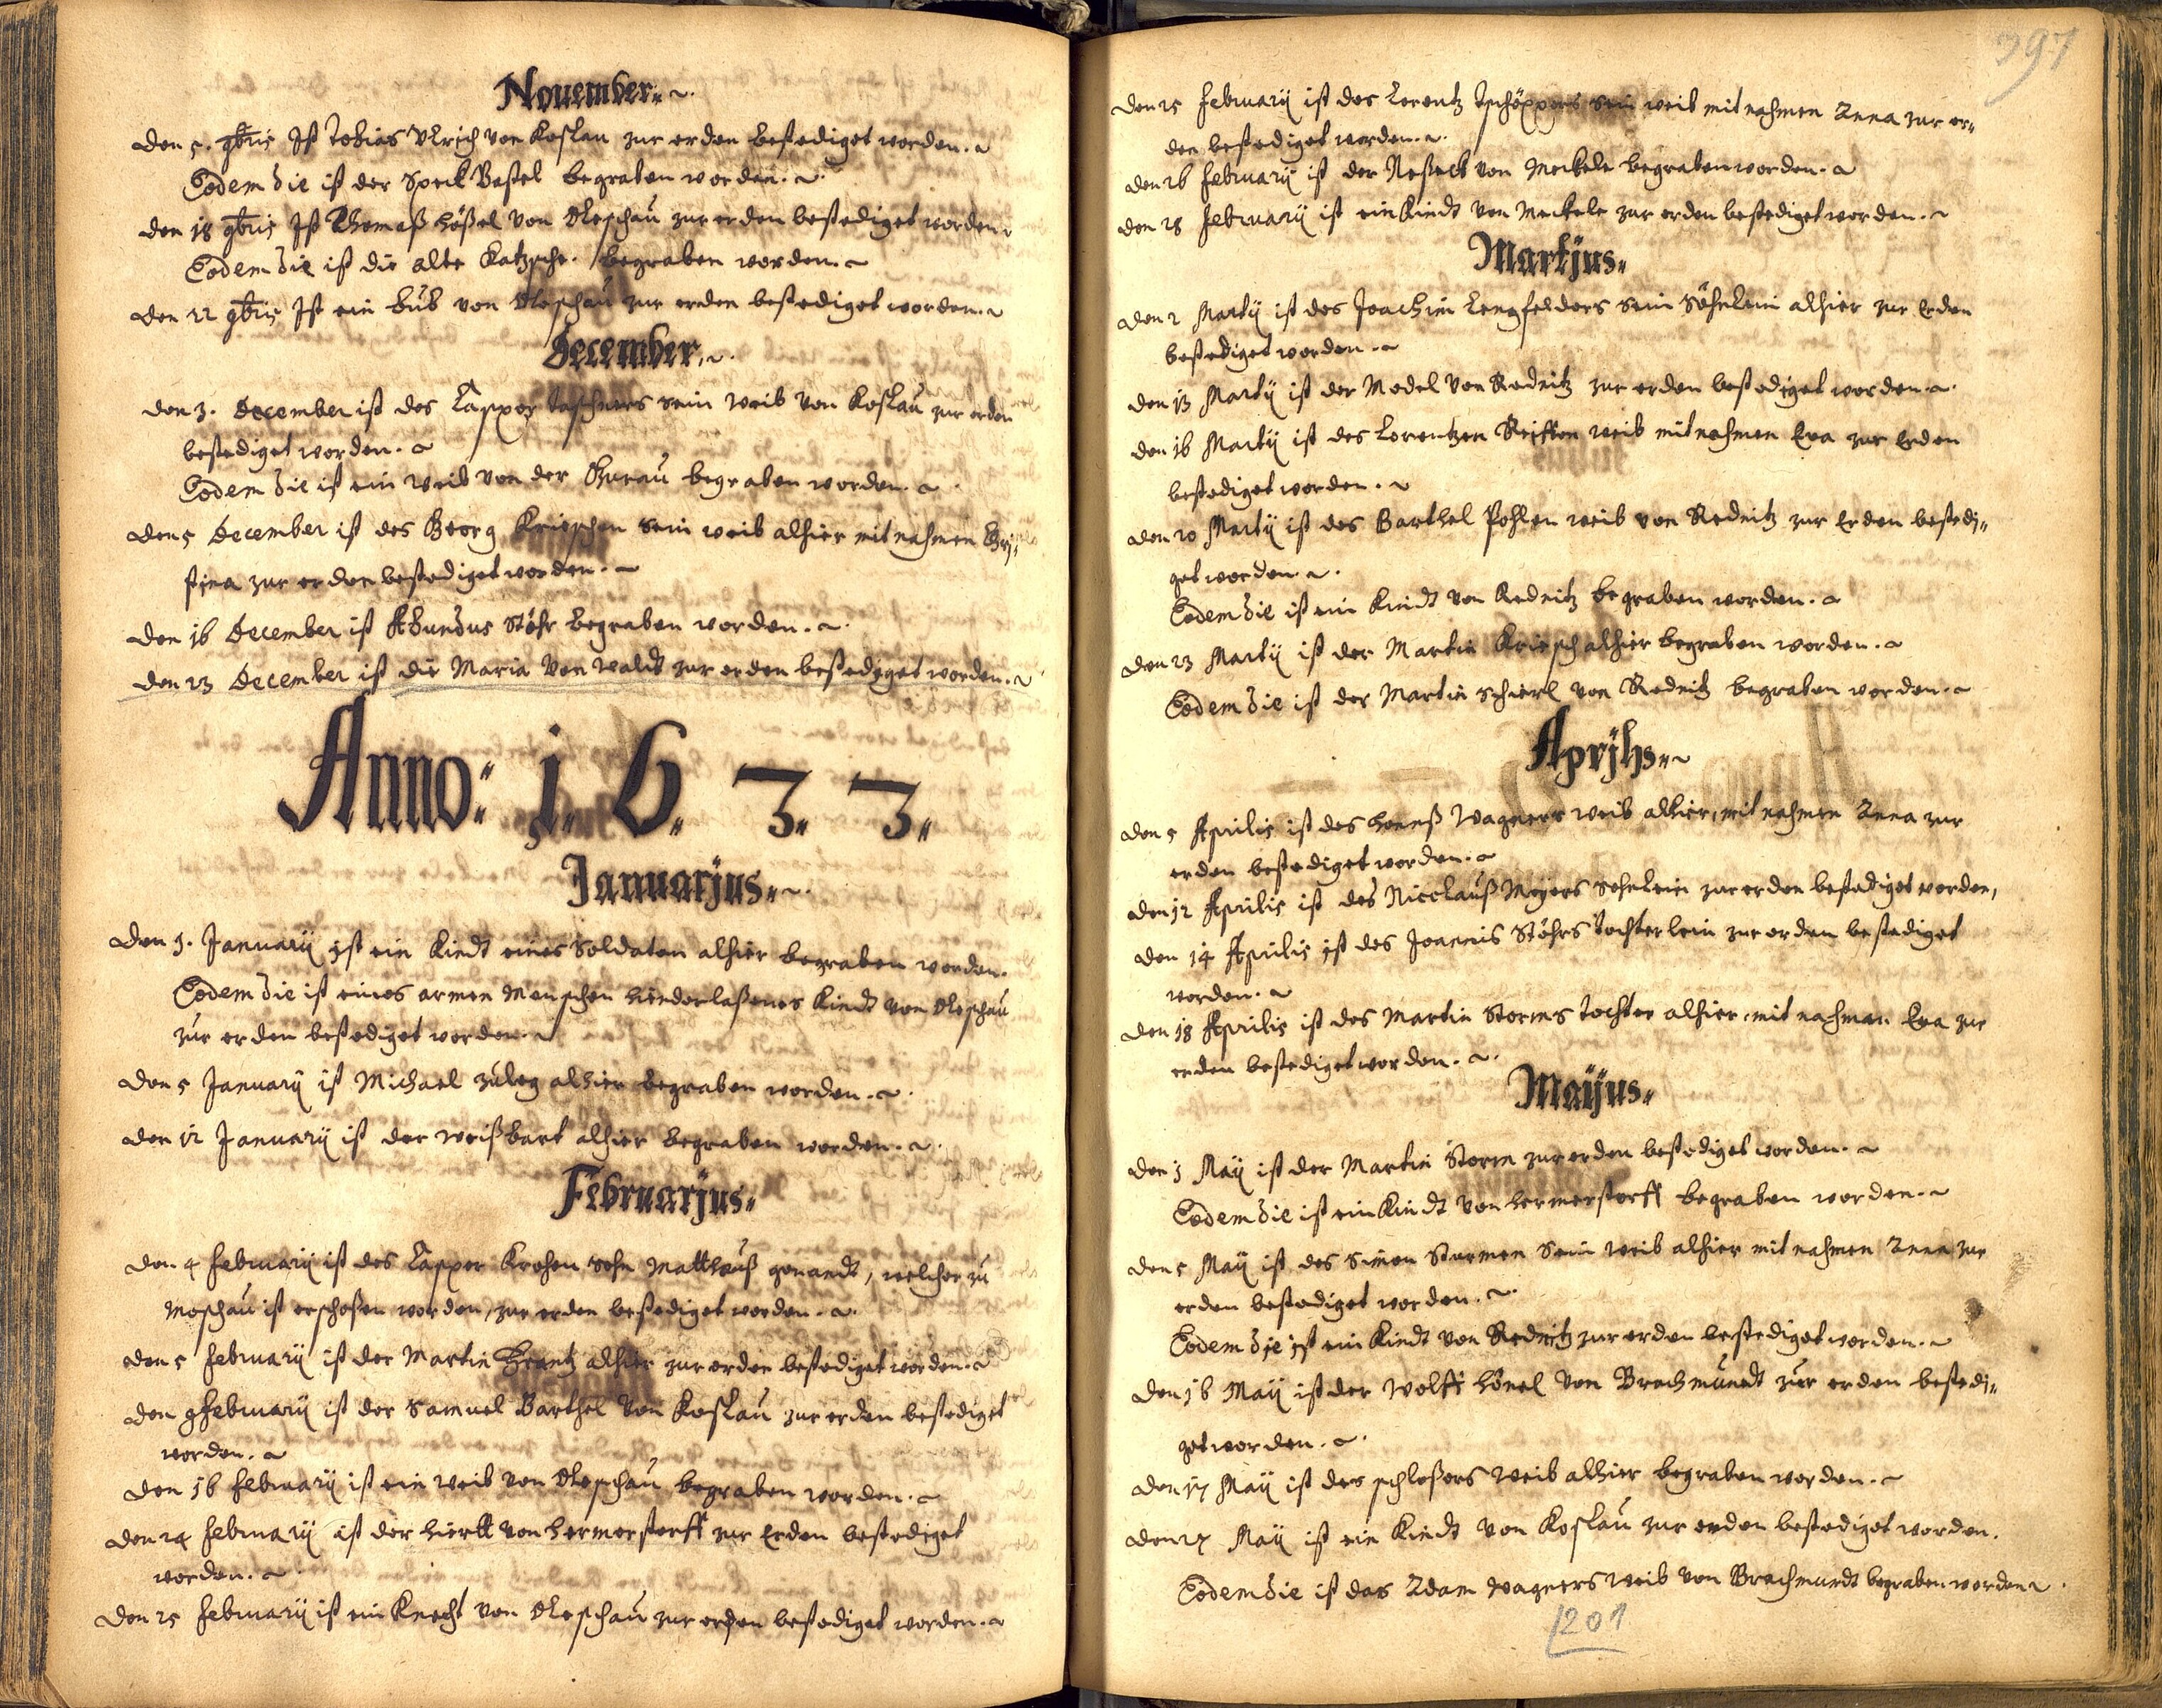 Nouember.
Den 5. 9bris Ist Tobias Vlrich von Koslau zur erden bestediget worden.
Eodem die ist der Speck Bastel begraben worden.
Den 18 9bris Ist Thomaß hößel von Oleschau zur erden bestediget worden
Eodem die ist die alte Katzsche begraben worden.
Den 22 9bris Ist ein bub von Oleschau zur erden bestediget worden.
December.
Den 3. December ist des Casper Taschners sein weib von Koslau zur erden
bestediget worden.
Eodem die ist ein weib von der Thurau begraben worden.
Den 5 December ist des Georg Krieschen sein weib alhier mit nahmen Chri-
stina zur erden bestediget worden.
Den 16 December ist Abundus Stöhr begraben worden.
Den 23 December ist die Maria von waldt zur erden bestediget worden.
Anno: 1. 6. 3. 3.
Januarius.
Den 1. Januarij ist ein Kindt eines Soldaten alhier begraben worden.
Eodem die ist eines armen Menschen hinderlaßenes Kindt von Oleschau
zur erden bestediget worden.
Den 5 Januarij ist Michael Zuleg alhier begraben worden.
Den 12 Januarij ist der weißbart alhier begraben worden.
Februarius.
Den 4 Februarij ist des Casper Krohen sohn Mattheuß genandt, welcher zu
Moschau ist erschoßen worden, zur erden bestediget worden.
Den 5 Februarij ist der Martin Frantz alhier zur erden bestediget worden.
Den 9 Februarij ist der Samuel Barthel von Koslau zur erden bestediget
worden.
Den 16 Februarij ist ein weib von Oleschau begraben worden.
Den 24 Februarij ist der hiertt von hermerstorff zur Erden bestediget
worden.
Den 25 Februarij ist ein Knecht von Oleschau zur erden bestediget worden.
397
Den 25 Februarij ist des Lorentz Tschöppers sein weib mit nahmen Anna zur er-
den bestediget worden.
Den 26 Februarij ist der von Meckele begraben worden.
Den 28 Februarij ist ein Kindt von Meckele zur erden bestediget worden.
Martius.
Den 2 Martij ist des Joachim Lengfelders sein Söhnlein alhier zur Erden
bestediget worden.
Den 13 Martij ist der Model von Rednitz zur erden bestediget worden.
Den 16 Martij ist des Lorentzen Reiffen weib mit nahmen Eva zur Erden
bestediget worden.
Den 20 Martij ist des Barthel Pohlen weib von Rednitz zur Erden bestedi-
get worden.
Eodem die ist ein Kindt von Rednitz begraben worden.
Den 23 Martij ist der Martin Kriesch alhier begraben worden.
Eodem die ist der Martin Schierl von Rednitz begraben worden.
Aprilis.
Den 5 Aprilis ist des Hanß Wagners weib alhier, mit nahmen Anna zur
erden bestediget worden.
Den 12 Aprilis ist des Nicolauß Meyers sohnlein zur erden bestediget worden,
Den 14 Aprilis ist des Joannis Stöhrs tochterlein zur erden bestediget
worden.
Den 18 Aprilis ist des Martin Storms tochter alhier, mit nahmen Eva zur
erden bestediget worden.
Maijus.
Den 1 Maij ist der Martin Storm zur erden bestediget worden.
Eodem die ist ein Kindt von hermerstorff begraben worden.
Den 5 Maij ist des Simon Sturmen sein weib alhier mit nahmen Anna zur
erden bestediget worden.
Eodem die ist ein Kindt von Rednitz zur erden bestediget worden.
Den 16 Maij ist der Wolff hönel von Brachmundt zur erden bestedi-
get worden.
Den 17 Maij ist des schloßers weib alhier begraben worden.
Den 27 Maij ist ein Kindt von Koslau zur erden bestediget worden.
Eodem die ist das Adam wagners weib von Brachmundt begraben worden.
201